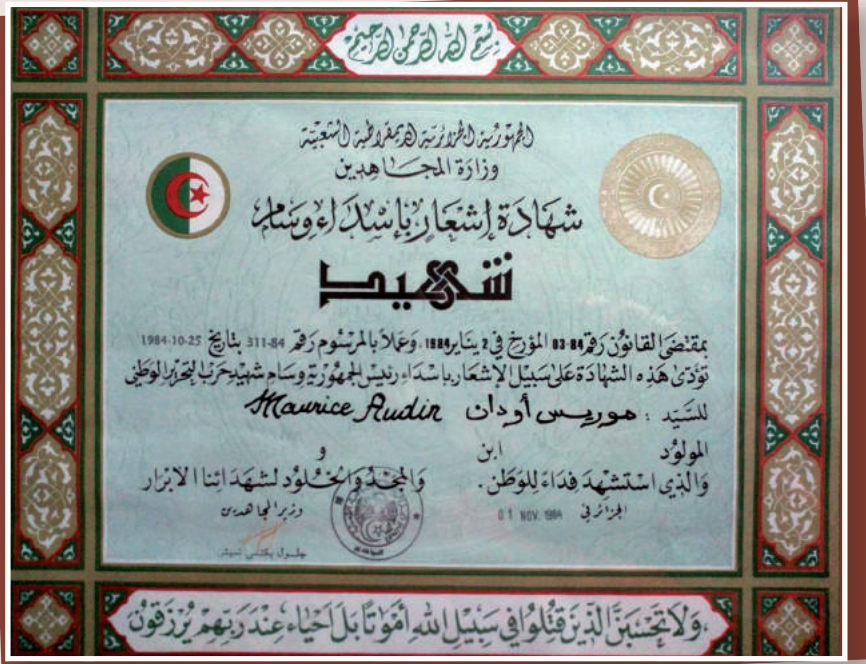 بسم الله الرحمن الرحيم
الجمهورية الجزائرية الديمقراطية الشعبية
وزارة المجاهدين
شهادة إشعار بإسداء وسام
شهيد
بمقتضى القانون رقم 84-03 المؤرخ في 2 يناير 1984، وعملا بالمرسوم رقم 84-311 بتاريخ 25-10-1984
تؤدى هذه الشهادة على سبيل الإشعار بإسداء رئيس الجمهورية وسام شهيد حرب التحرير الوطني
للسيد : موريس أودان Maurice Audin
المولود ابن و
والذي استشهد فداء للوطن . والمجد والخلود لشهدائنا الابرار
الجزائر في 01 NOV. 1984 وزير المجاهدين
جلول
ولا تحسبن الذين قتلوا في سبيل الله أمواتا بل احياء عند ربهم يرزقون